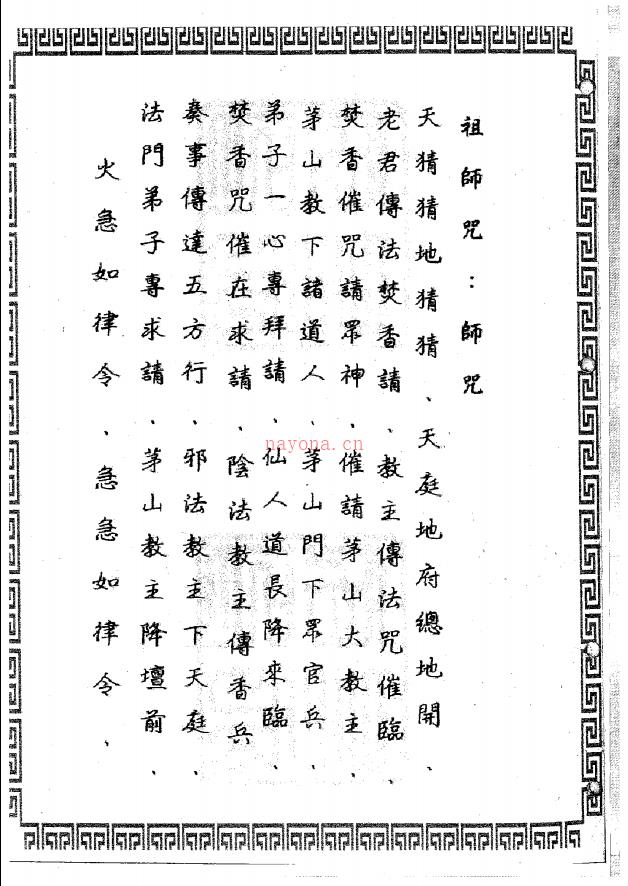 祖師咒：師咒
天猜猜地猜猜、天庭地府總地開、
老君傳法焚香請、教主傳法咒催臨、
焚香催咒請眾神、催請茅山大教主、
茅山教下諸道人、茅山門下眾官兵、
弟子一心專拜請、仙人道長降來臨、
焚香咒催在求請、陰法教主傳香兵、
奏事傳達五方行、邪法教主下天庭、
法門弟子專求請、茅山教主降壇前、
火急如律令、急急如律令、
nayona.cn